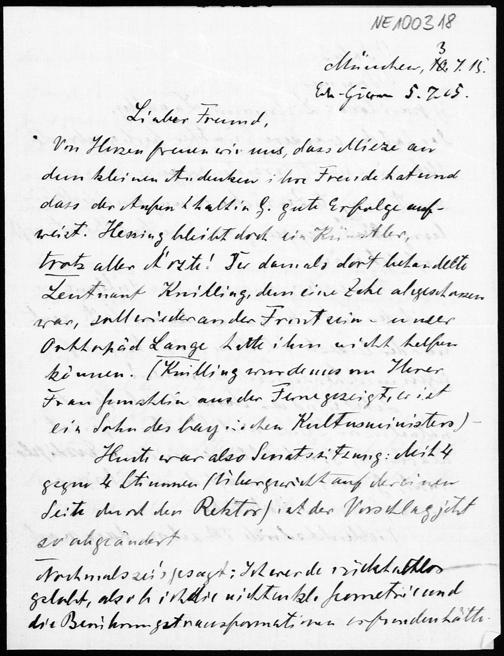 NE100318
München, 3. 7. 15.
5. 7. 15.
Lieber Freund,
Von Herzen freuen wir uns, dass Mieze an
dem kleinen Andenken ihre Freude hat und
dass der Aufenthalt in G. gute Erfolge auf-
weist. Hessing bleibt doch ein Künstler,
trotz aller Ärzte! Der damals dort behandelte
Leutnant Knilling, dem eine Zehe abgeschossen
war, soll wieder an der Front sein - unser
Orthopäd Lange hatte ihm nicht helfen
können. (Knilling wurde uns von Ihrer
Frau Gemahlin aus der Ferne gezeigt, er ist
ein Sohn des bayrischen Kultusministers) -
Heute war also Senatssitzung: Mit 4
gegen 4 Stimmen (Übergewicht auf der einen
Seite durch den Rektor) ist der Vorschlag jetzt
so abgeändert
Nochmals sei's gesagt: Ich werde
gelobt, als ob ich die nichteukl. Geometrie und
die Berührungstransformationen erfunden hätte.